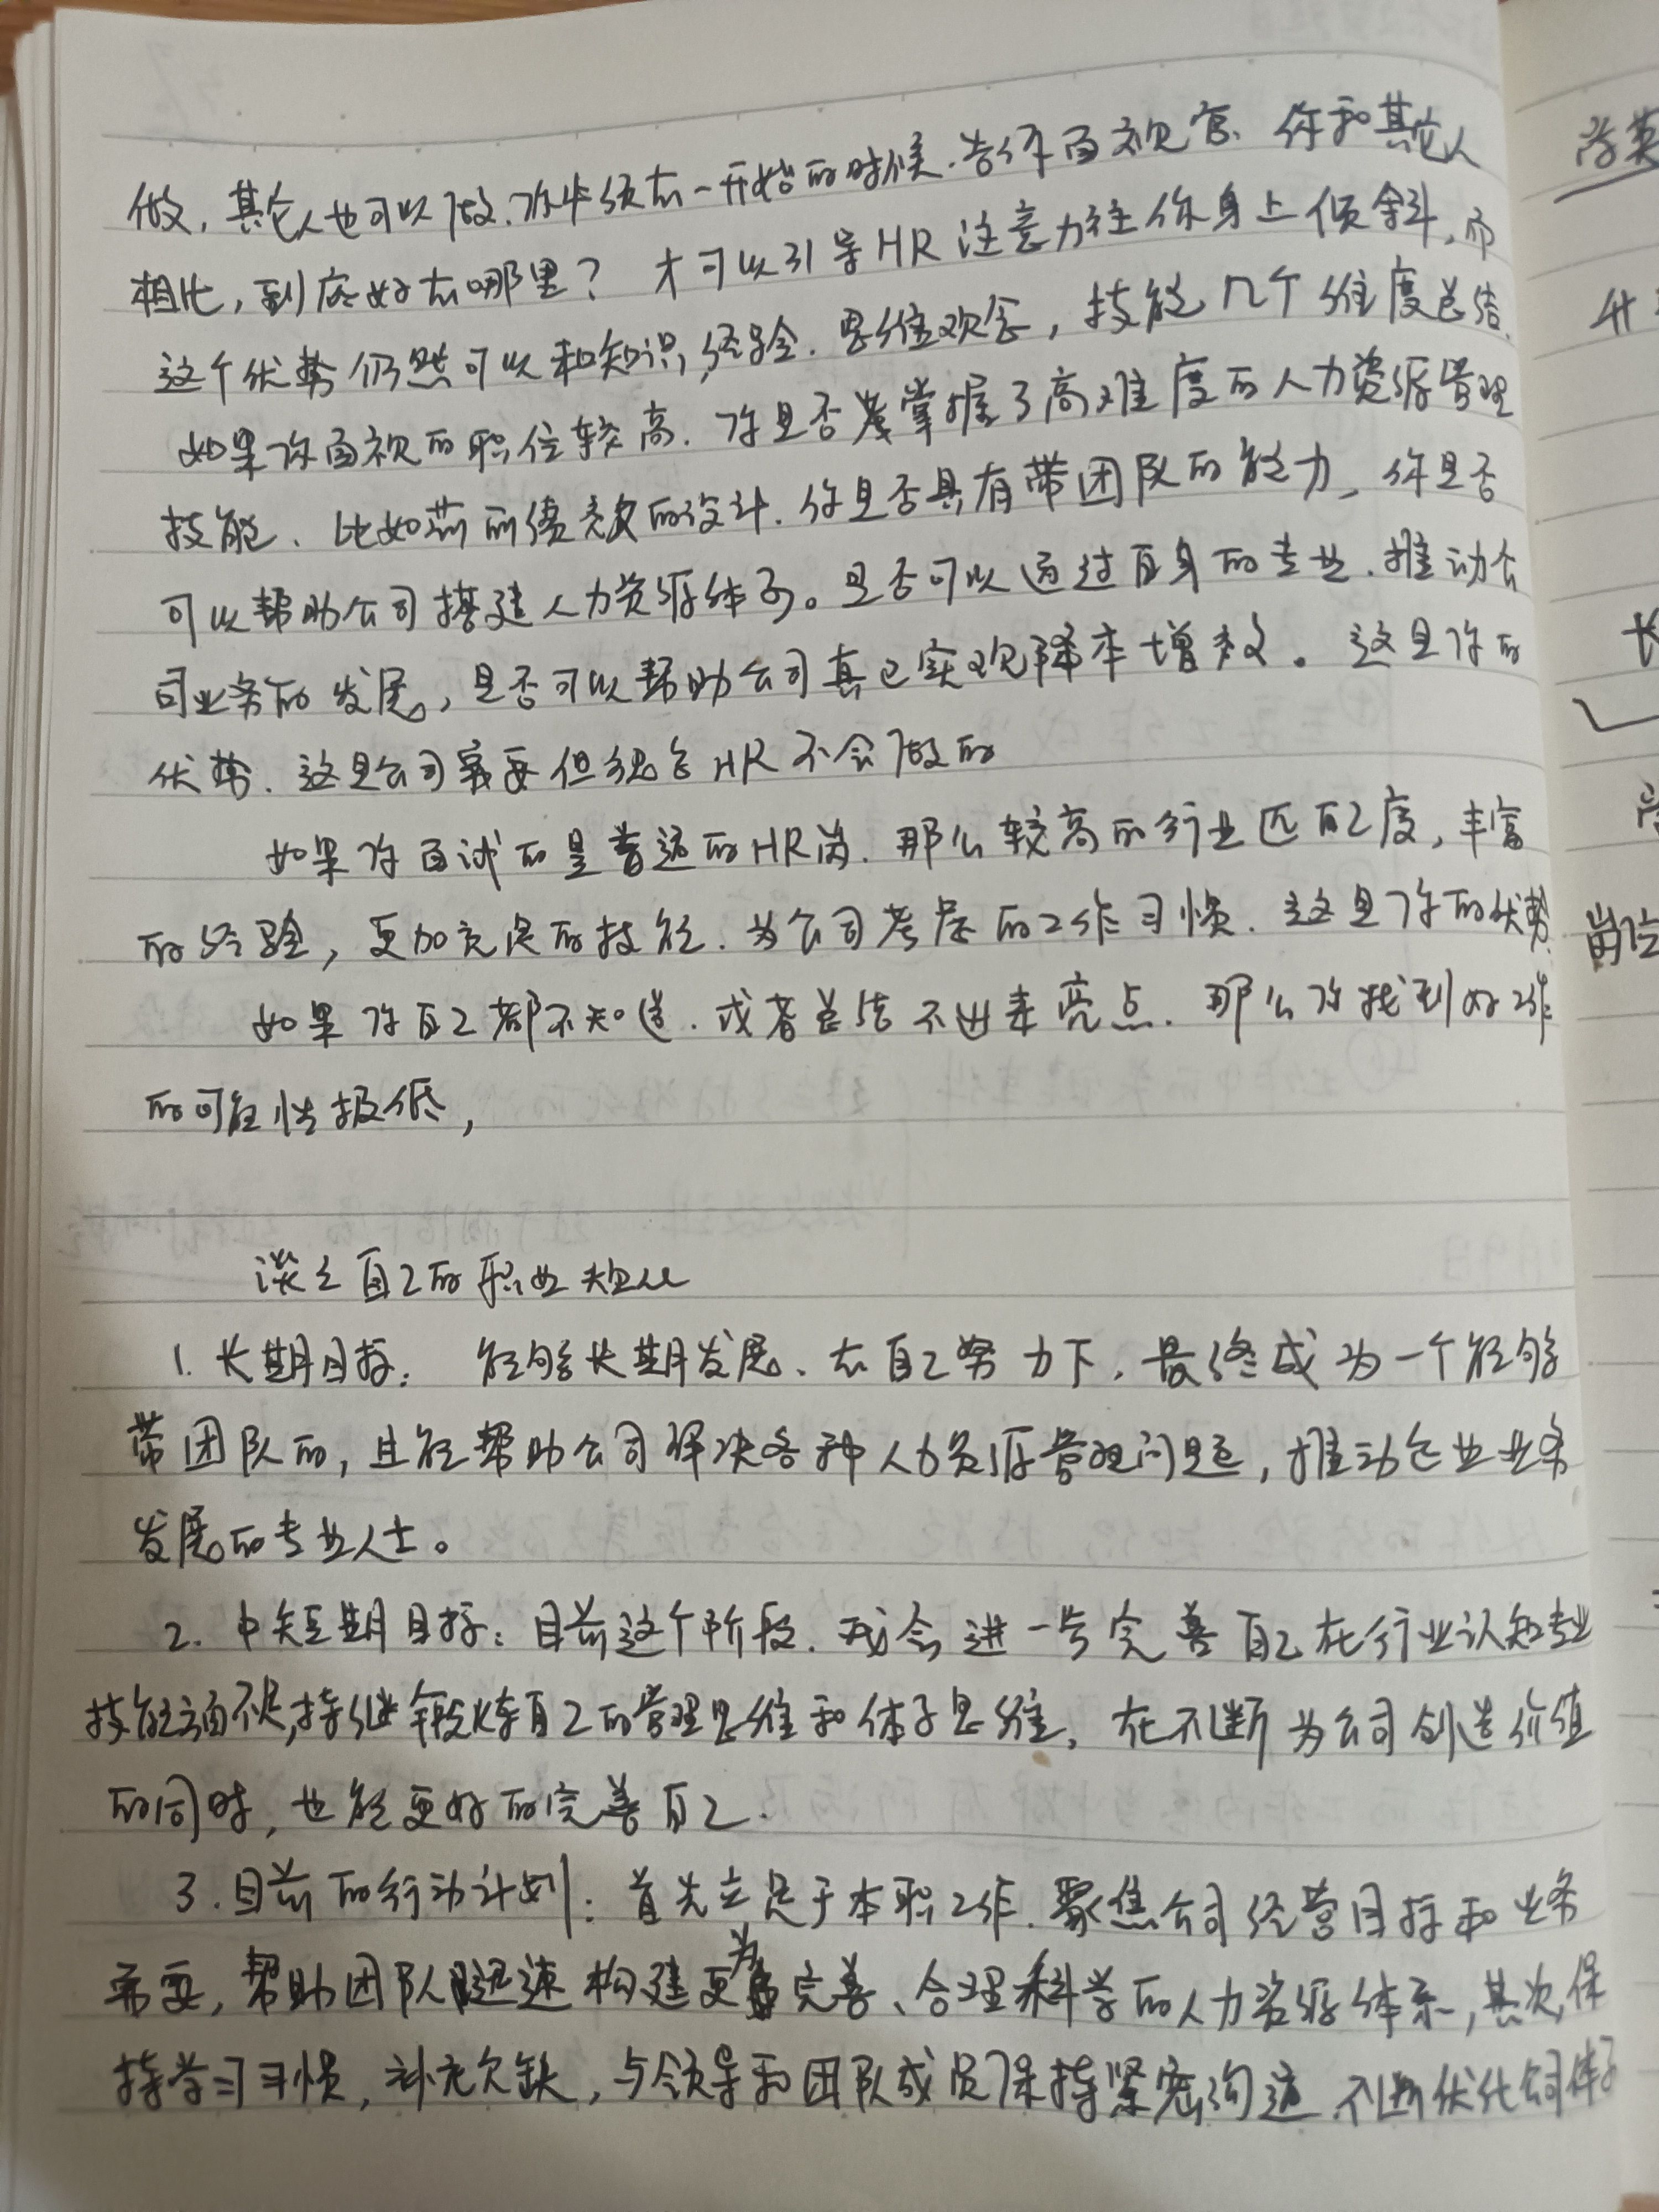 做，其它人也可以做，你必须在一开始的时候，告诉面视官、你和其它人
相比，到底好在哪里？才可以引导HR注意力往你身上倾斜，而
这个优势仍然可以和知识，经验，思维观念，技能几个维度总结，
如果你面视的职位较高，你是否掌握了高难度的人力资源管理
技能、比如薪酬绩效的设计，你是否具有带团队的能力，你是否
可以帮助公司搭建人力资源体系。是否可以通过自身的专业，推动公
司业务的发展，是否可以帮助公司真正实现降本增效。这是你的
优势，这是公司需要但现有HR不会做的
如果你面试的是普通的HR岗，那么较高的行业匹配度，丰富
的经验，更加充足的技能，为公司考虑的工作习惯，这是你的优势，
如果你自己都不知道，或者总结不出来亮点，那么你找到好工作
的可能性极低，
谈谈自己的职业规划
1. 长期目标：能够长期发展、在自己努力下，最终成为一个能够
带团队的，且能帮助公司解决各种人力资源管理问题，推动企业业务
发展的专业人士。
2. 中短期目标：目前这个阶段，我会进一步完善自己在行业认知专业
技能方面不足，持续锻炼自己的管理思维和体系思维，在不断为公司创造价值
的同时，也能更好的完善自己．
3. 目前的行动计划：首先立足于本职工作，聚焦公司经营目标和业务
需要，帮助团队迅速构建更为完善、合理科学的人力资源体系，其次，保
持学习习惯，补充欠缺，与领导和团队成员保持紧密沟通，不断优化
岗位